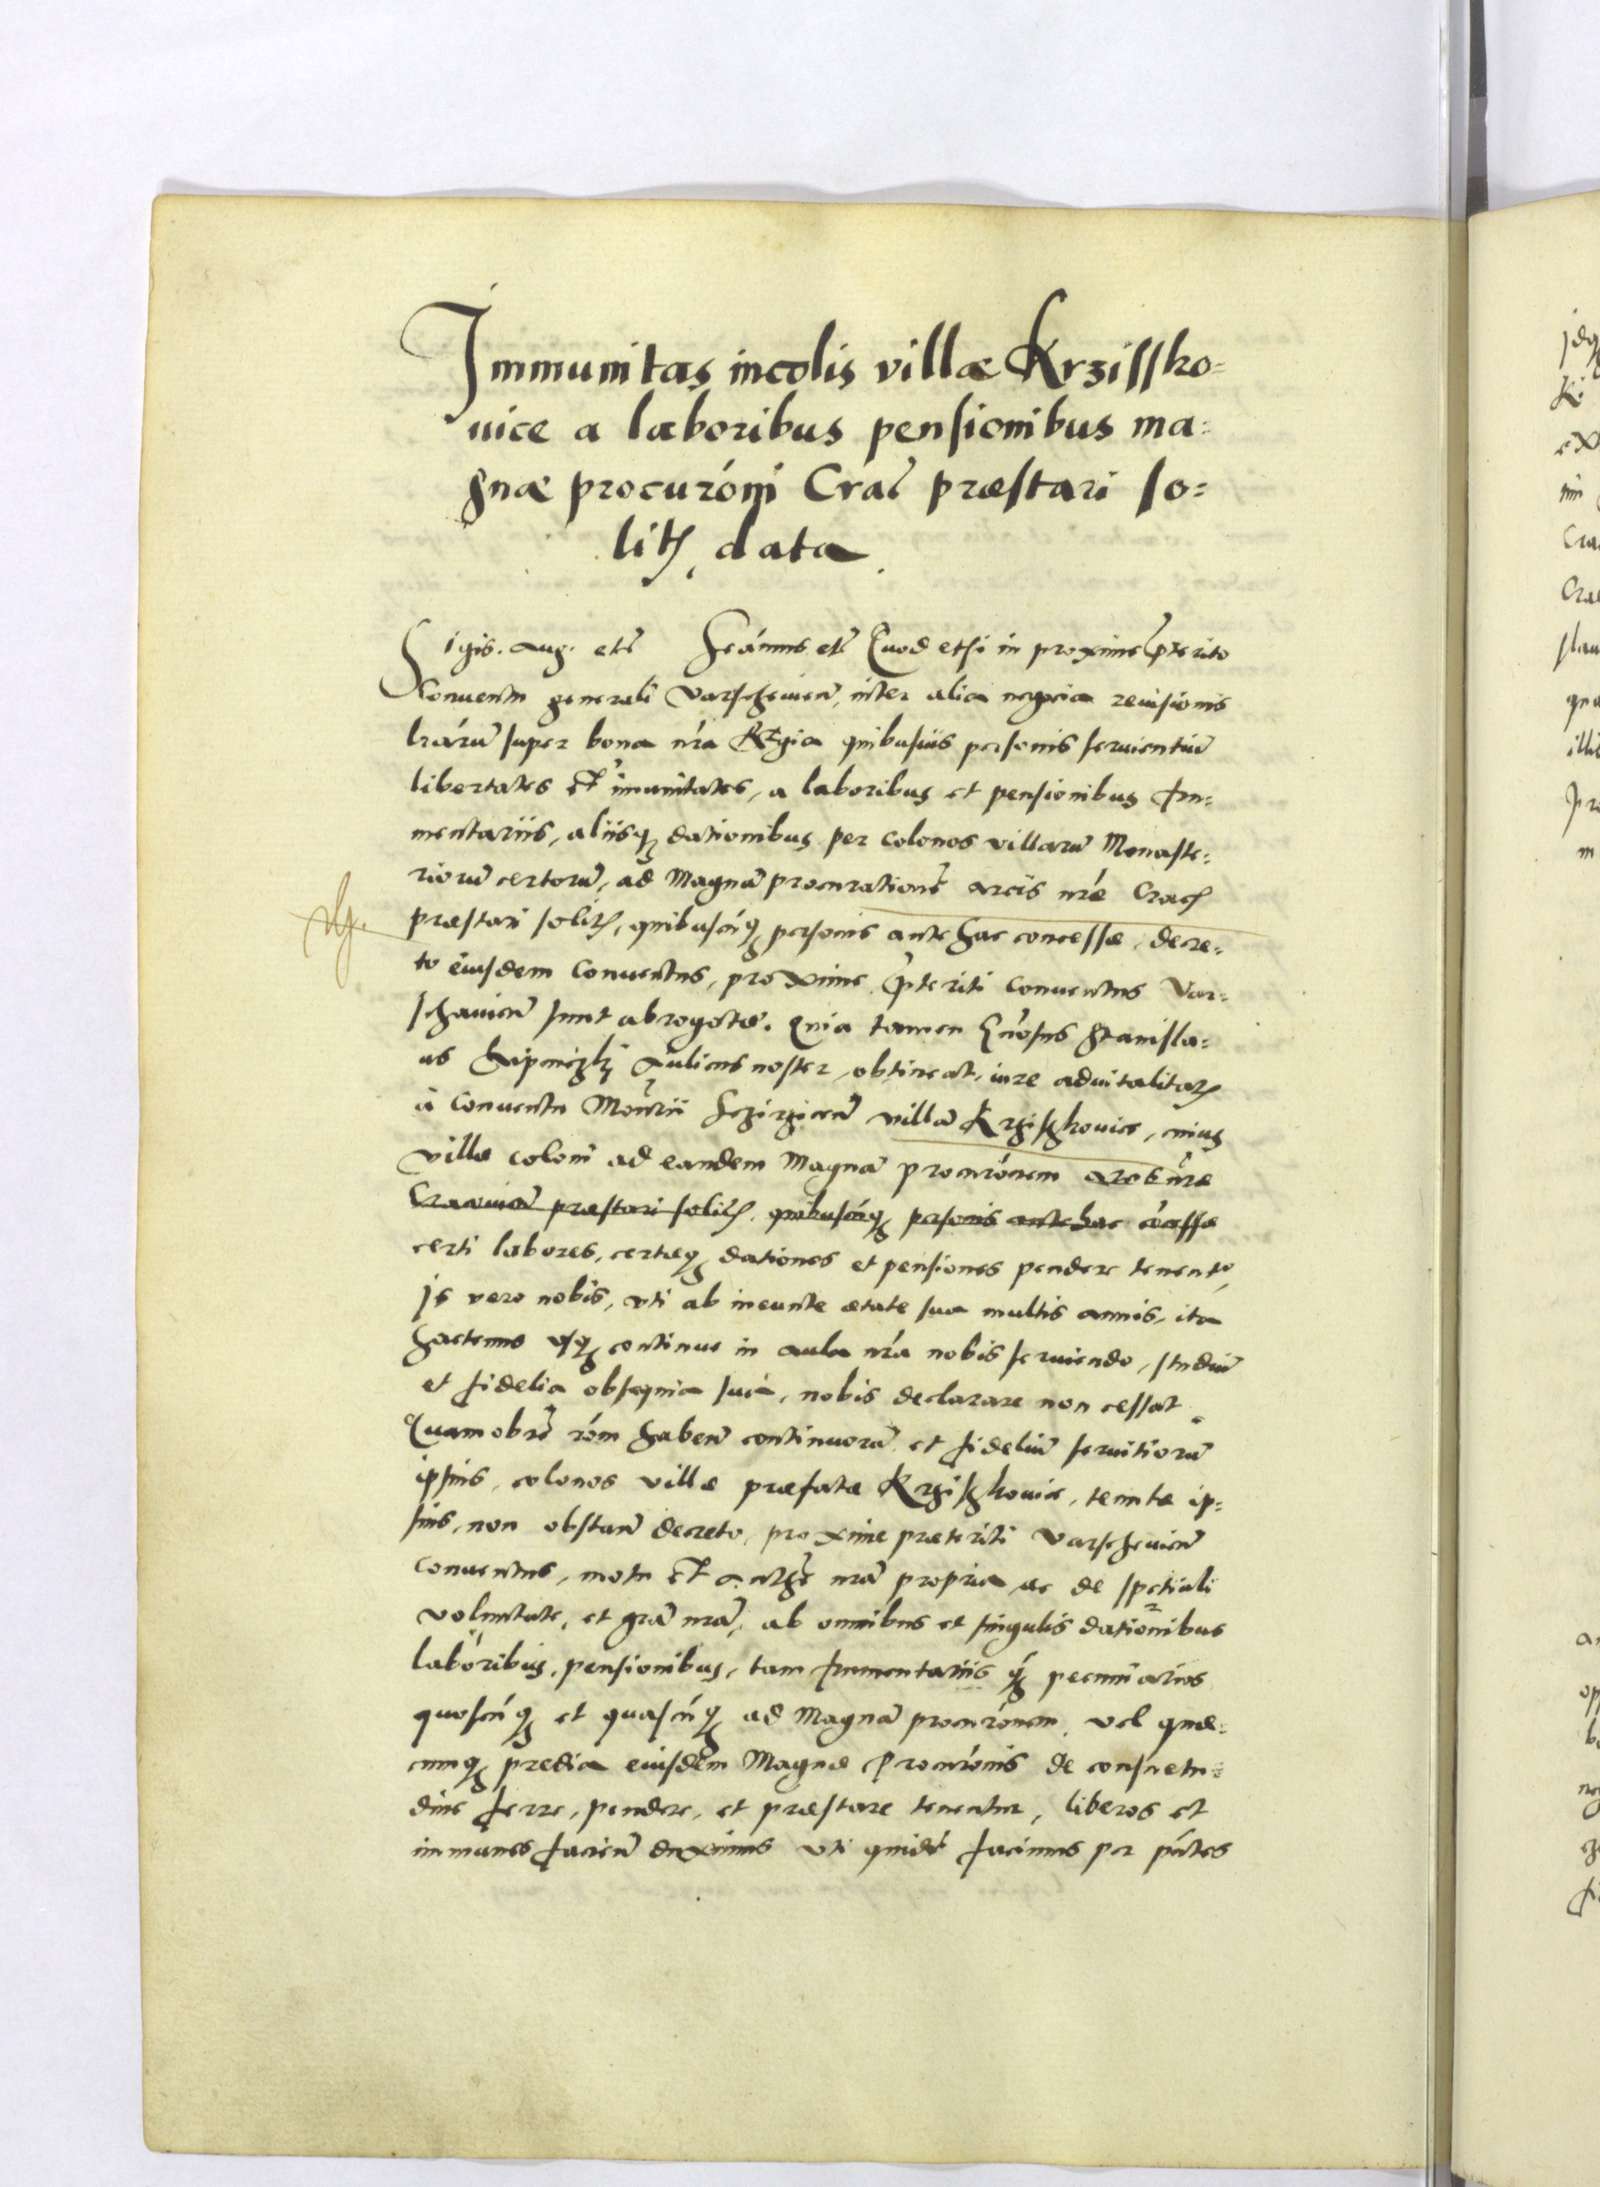 Immunitas incolis villæ Krzissko-
vice a laboribus pensionibus ma-
gnæ procurónj Craĉ præstari so-
litꝭ, data.
Sigis. Aug. etč Seámus etč Quod etsi in proxime p̄terito
Conventu generali Varscheuień, inter alia negocia revisionis
lrárū super bona nr̄a Regia quibusuis personis seruientiū
libertates et imunitates, a laboribus et pensionibus fru-
mentariis, aliisqꝫ dationibus per colonos villarū Monaste-
riorū certorū, ad Magnā procurationē arcis nr̄æ Cracꝭ
præstari solitꝭ, quibuscūqꝫ personis antehac concessæ, decre-
to eiusdem Conventus, proxime p̄teriti Conventus Var-
schavień sunt abrogatæ. Quia tamen Gn̄osus Stanisla-
us Aulicus noster, obtineat, iure advitalitatꝭ
à Conventu Mon̄rii villā Krzischkovice, cuius
villæ coloni ad eandem Magnā procurónem arcis nr̄æ
Cracovień præstari solitꝭ, quibuscūqꝫ personis antehac cōcessæ
certi labores, certæqꝫ dationes et pensiones pendere tenent᷑,
Is vero nobis, uti ab ineunte ætate sua multis annis, ita
hactenus usqꝫ continue in aula nr̄a nobis serviendo, studiū
et fidelia obsequia sua, nobis declarare non cessat.
Quamobrē rōm habeń continuorū et fideliū servitiorū
ipsius, colonos villæ præfatæ Krzischkovice, tentæ ip-
sius, non obstań decreto, proxime præteriti Varscheuień
conventus, motu et authē nr̄a propria ac de spetiali
voluntate, et grā nr̄ā, ab omnibus et singulis dationibus
laboribus, pensionibus, tam frumentariis qꝫ pecuniarios
quoscūqꝫ et quascūqꝫ ad Magnā procurónem, vel quæ-
cunqꝫ predia eiusdem Magnæ Procurónis de consuetu-
dine ferre, pendere, et præstare tenentur, liberos et
immunes facień duximus uti quidē facimus per pn̄tes